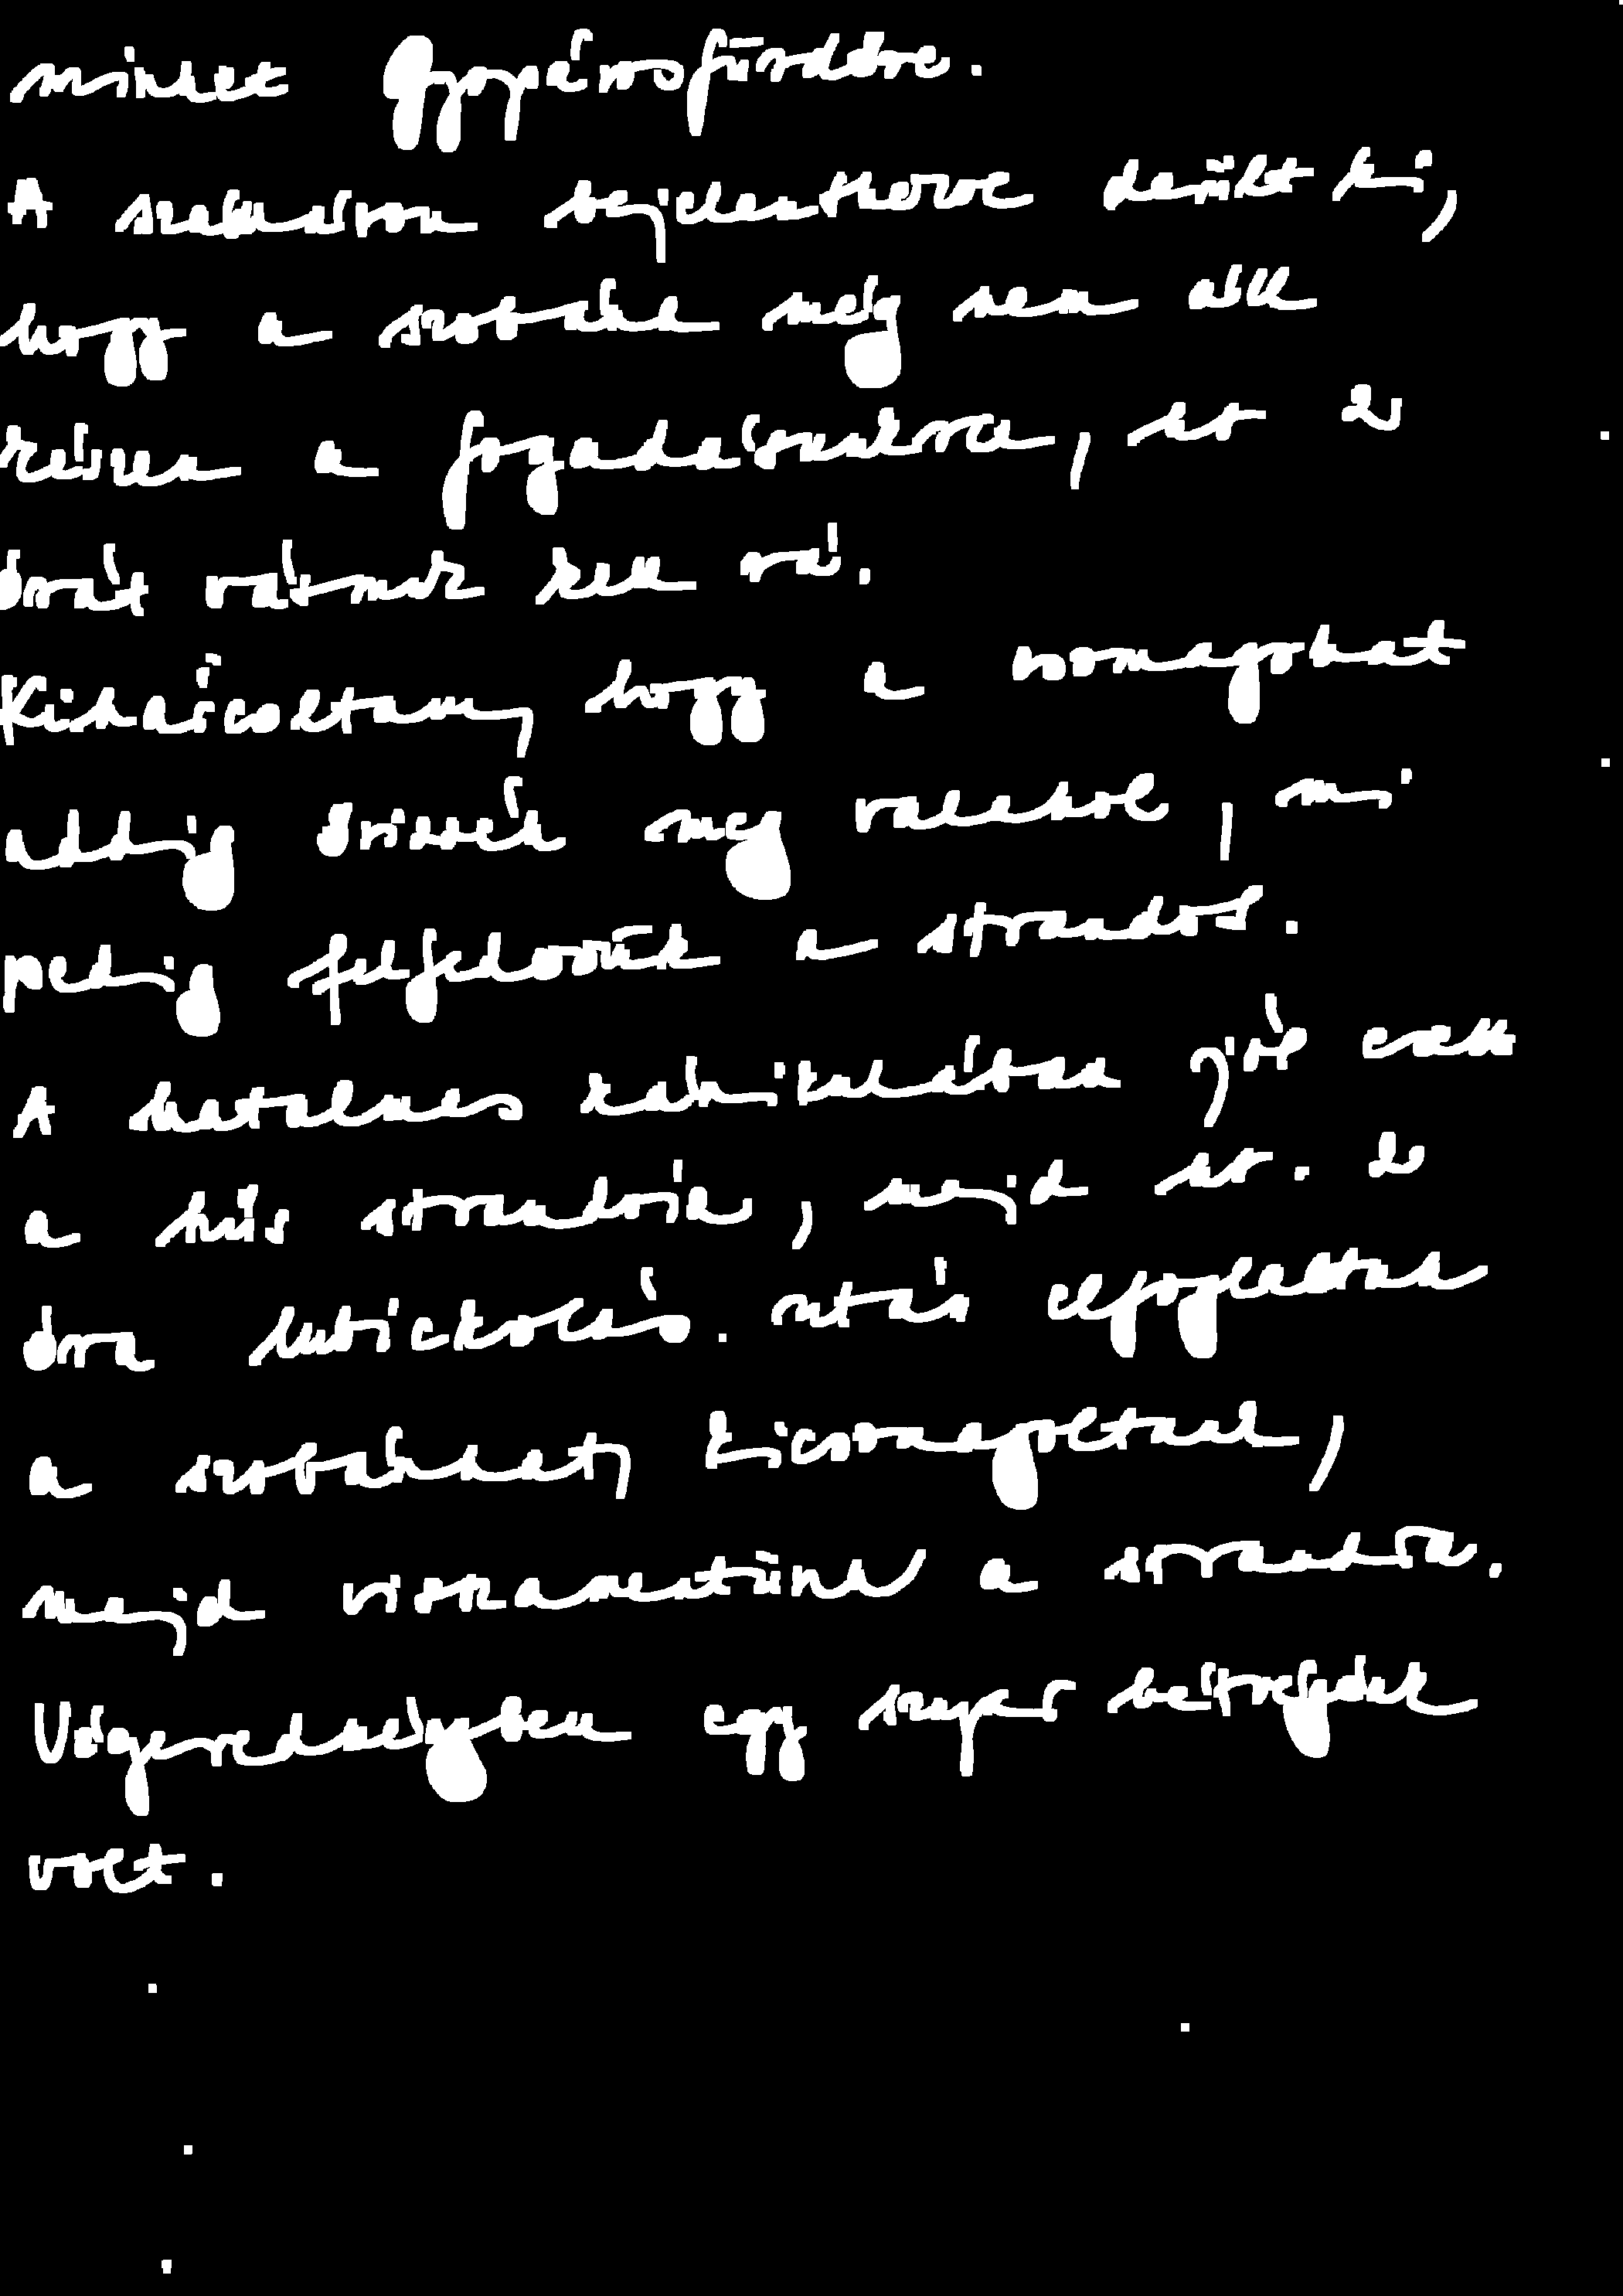 minket Gyopárosfürdőre.
A szállásra bejelentkezve derült ki,
hogy a szobánk még nem áll
készen a fogadásunkra, kb 2
órát várnunk kell rá.
Kiharcoltam, hogy a csomagokat
addig őrizzék meg valahol, mi
pedig felfedezzük a strandot.
A hatalmas kánikulában jól esett
a hűs strandvíz, majd kb. 2
óra lubickolás. után elfoglaltuk
a szobánkat, kicsomagoltunk,
majd visszamentünk a strandra.
Végeredményben egy szuper hétvégénk
volt.